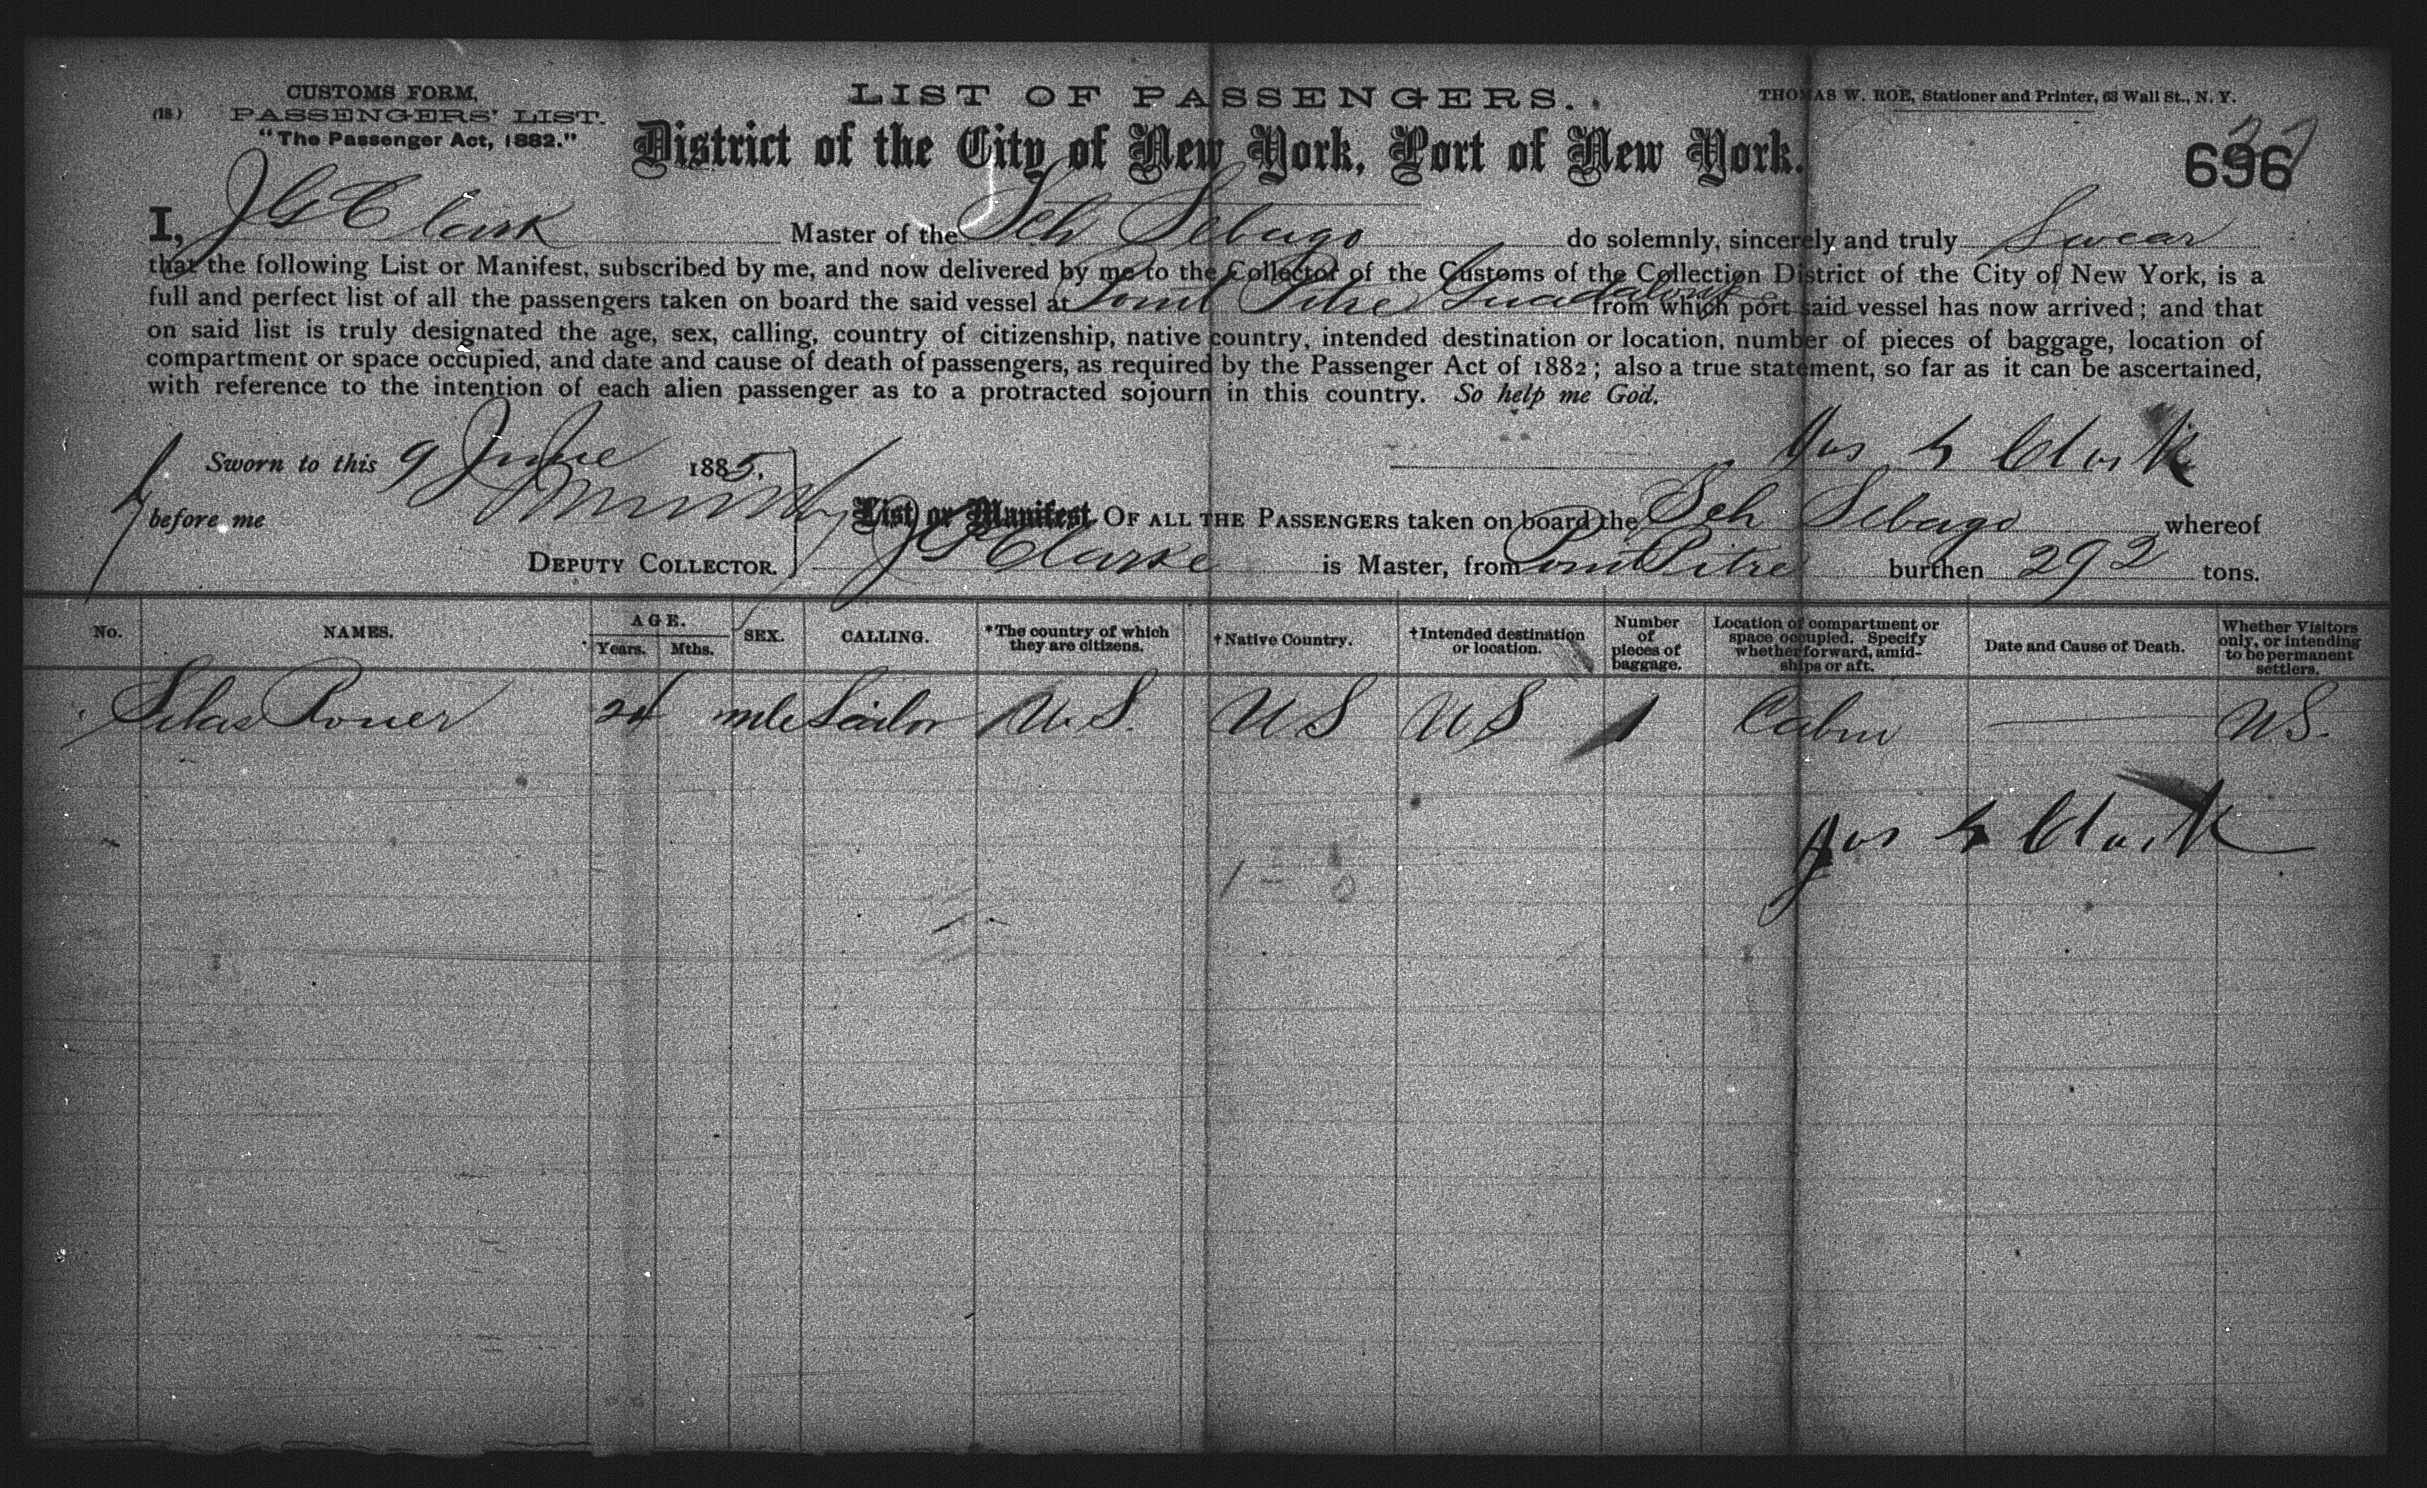 CUSTOMS FORM.
(18.) PASSENGERS' LIST.
"The Passenger Act, 1882."
LIST OF PASSENGERS.
THOMAS W. ROE, Stationer and Printer, 63 Wall St., N. Y.
District of the City of New York, Port of New York.
696
I, J G Clark Master of the Sch Sebago do solemnly, sincerely and truly Swear
that the following List or Manifest, subscribed by me, and now delivered by me to the Collector of the Customs of the Collection District of the City of New York, is a
full and perfect list of all the passengers taken on board the said vessel at Point Pitre Guadaloupe from which port said vessel has now arrived; and that
on said list is truly designated the age, sex, calling, country of citizenship, native country, intended destination or location, number of pieces of baggage, location of
compartment or space occupied, and date and cause of death of passengers, as required by the Passenger Act of 1882; also a true statement, so far as it can be ascertained,
with reference to the intention of each alien passenger as to a protracted sojourn in this country. So help me God.
Sworn to this 9 June 1885.
Jas G Clark
before me
List or Manifest OF ALL THE PASSENGERS taken on board the Sch Sebago whereof
DEPUTY COLLECTOR.
J G Clarke is Master, from Point Pitre burthen 292 tons.
No. NAMES. AGE. Years. Mths. SEX. CALLING. *The country of which they are citizens. †Native Country. †Intended destination or location. Number of pieces of baggage. Location of compartment or space occupied. Specify whether forward, amidships or aft. Date and Cause of Death. Whether Visitors only, or intending to be permanent settlers.
Silas 24 mle Sailor U.S. U S U S 1 Cabin U.S.
Jas G Clark